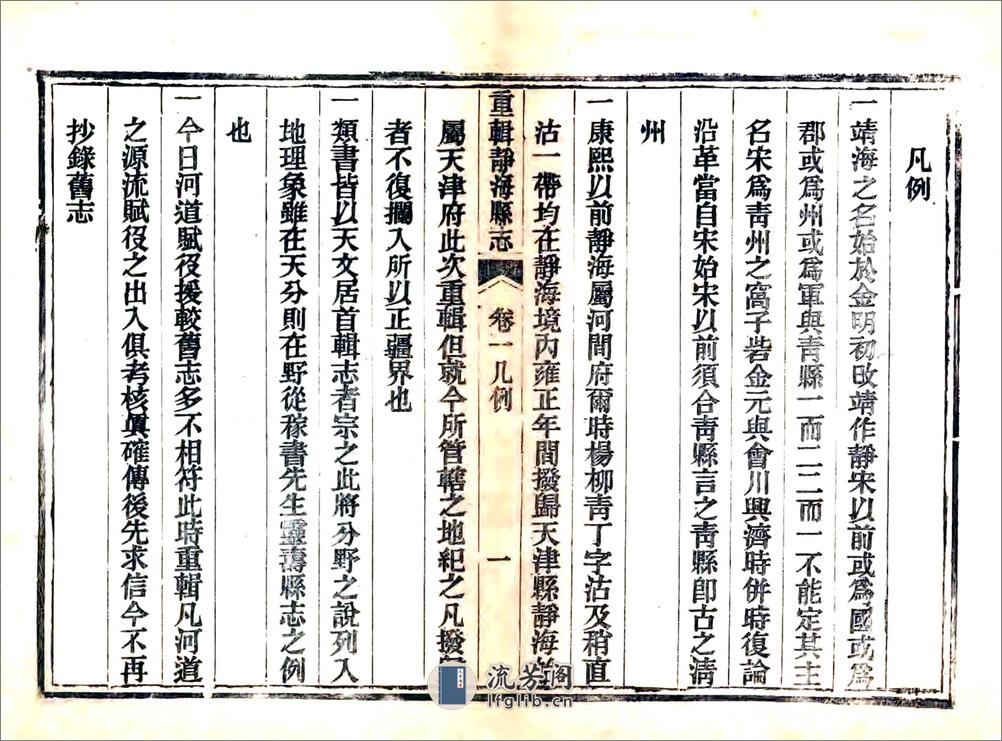 凡例
一靖海之名始於金明初改靖作靜宋以前或爲國或爲
郡或爲州或爲軍與青縣一而二二而一不能定其主
名宋爲青州之窩子砦金元與會川興濟時併時復論
沿革當自宋始宋以前須合青縣言之青縣卽古之淸
州
一康熙以前靜海屬河間府爾時楊柳青丁字沽及稍直
沽一帶均在靜海境內雍正年間撥歸天津縣靜海
屬天津府此次重輯但就今所管轄之地紀之凡撥
者不復攔入所以正疆界也
重輯靜海縣志 卷一凡例 一
一類書皆以天文居首輯志者宗之此將分野之說列入
地理象雖在天分則在野從稼書先生靈壽縣志之例
也
一今日河道賦役援較舊志多不相符此時重輯凡河道
之源流賦役之出入俱考核眞確傳後先求信今不再
抄錄舊志
流芳閣
lfglib.cn